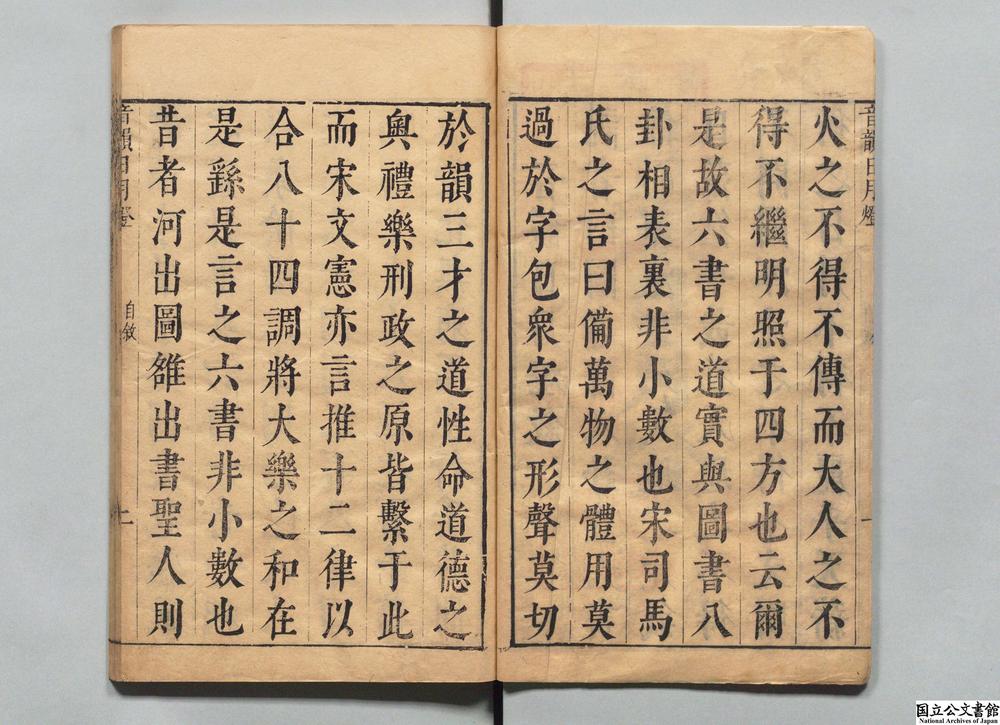 音韻日月燈
一
火之不得不傳而大人之不
得不繼明照于四方也云爾
是故六書之道實與圖書八
卦相表裏非小數也宋司馬
氏之言曰備萬物之體用莫
過於字包衆字之形聲莫切
於韻三才之道性命道德之
奧禮樂刑政之原皆繫于此
而宋文憲亦言推十二律以
合八十四調將大樂之和在
是繇是言之六書非小數也
昔者河出圖雒出書聖人則
音韻日月燈
自敘
二
国立公文書館
National Archives of Japan